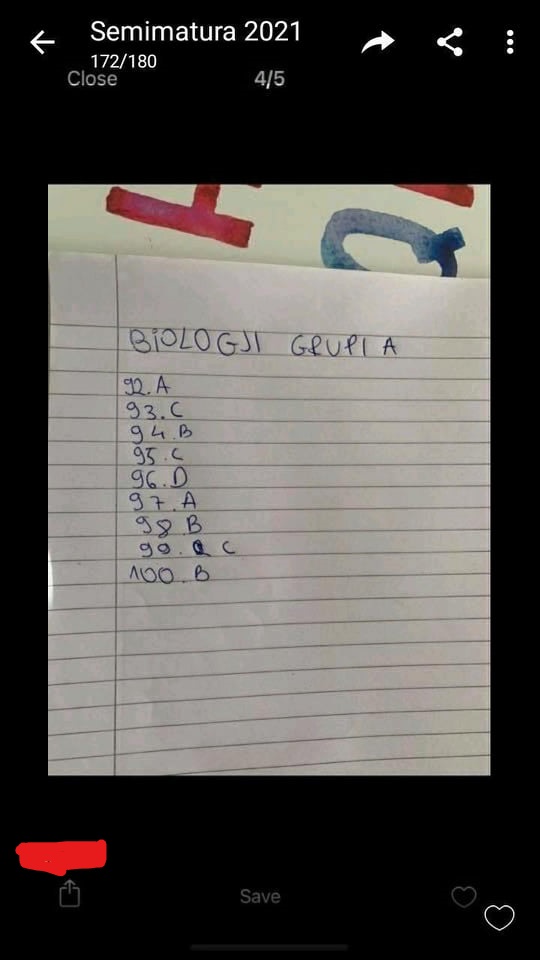 Semimatura 2021
172/180
Close 4/5
BIOLOGJI GRUPI A
92. A
93. C
94. B
95. C
96. D
97. A
98. B
99. C
100. B
Save